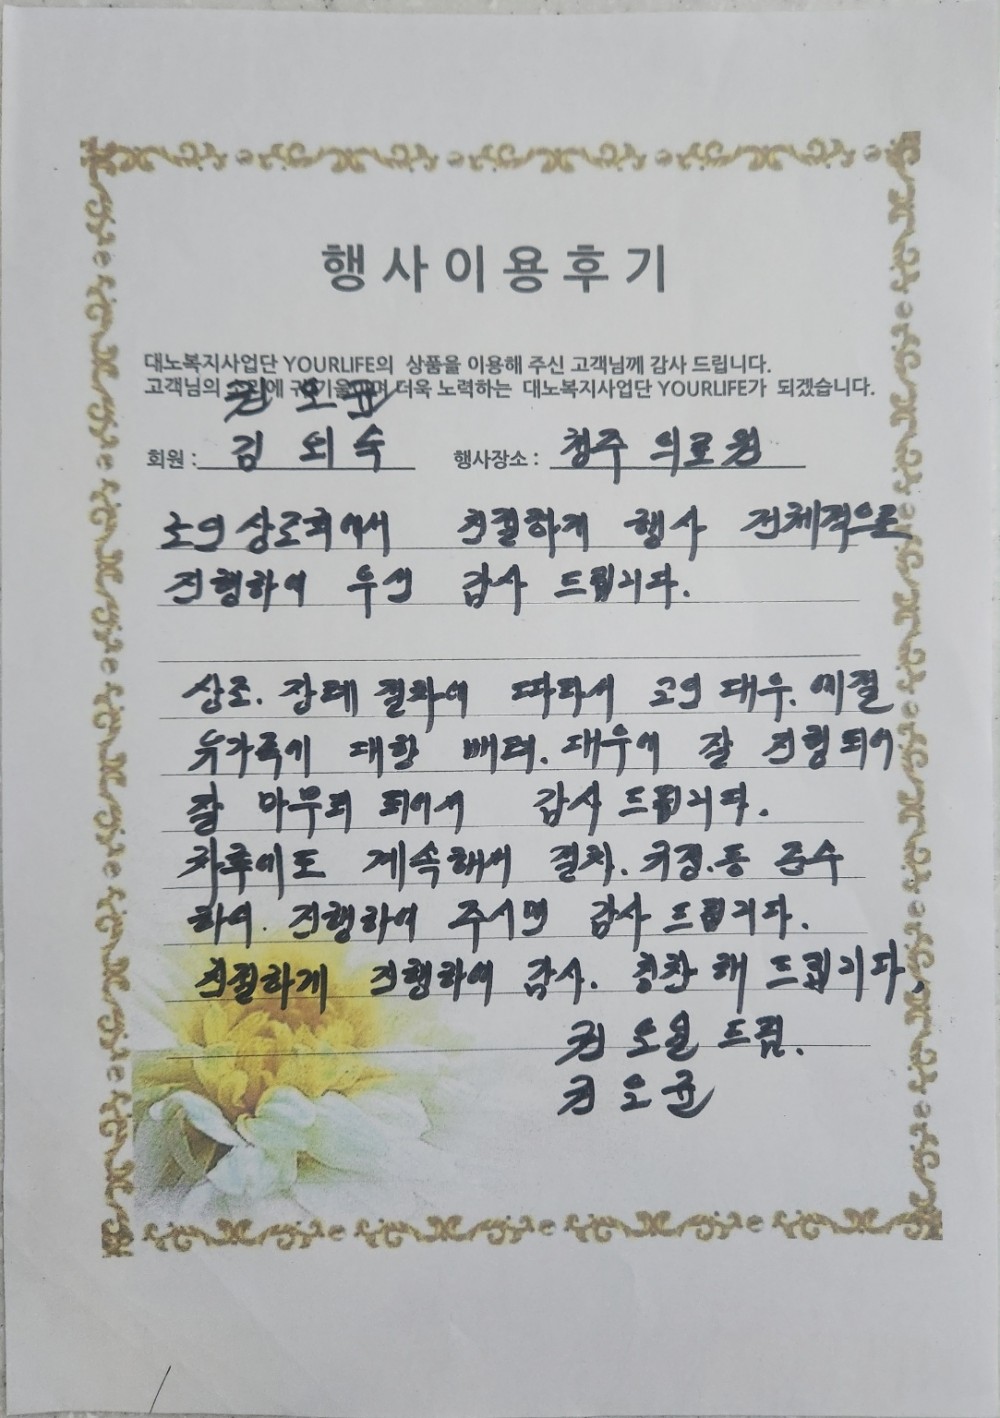 행사이용후기
대노복지사업단 YOURLIFE의 상품을 이용해 주신 고객님께 감사 드립니다.
고객님의 소리에 귀 기울이며 더욱 노력하는 대노복지사업단 YOURLIFE가 되겠습니다.
권 오균
회원 : 김 외숙 행사장소 : 청주 의료원
고의 상조회에서 친절하게 행사 전체적으로
진행하여 우선 감사 드립니다.
상조. 장례 절차에 따라서 고인 대우. 예절
유가족에 대한 배려. 대우에 잘 진행되어
잘 마무리 되어서 감사 드립니다.
차후에도 계속해서 절차. 규정.등 준수
하여. 진행하여 주시면 감사 드립니다.
친절하게 진행하여 감사. 칭찬 해 드립니다.
권 오일 드림.
권 오균